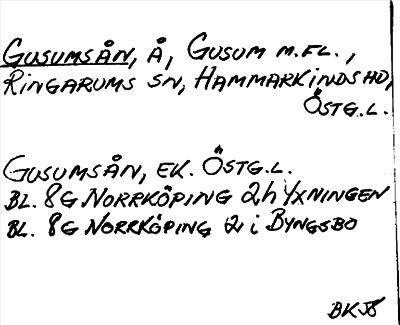 GUSUMSÅN, Å, GUSUM M.FL.,
RINGARUMS SN, HAMMARKINDS HD,
ÖSTG.L.
GUSUMSÅN, EK. ÖSTG.L.
BL. 8G NORRKÖPING 2h YXNINGEN
BL. 8G NORRKÖPING 2 i BYNGSBO